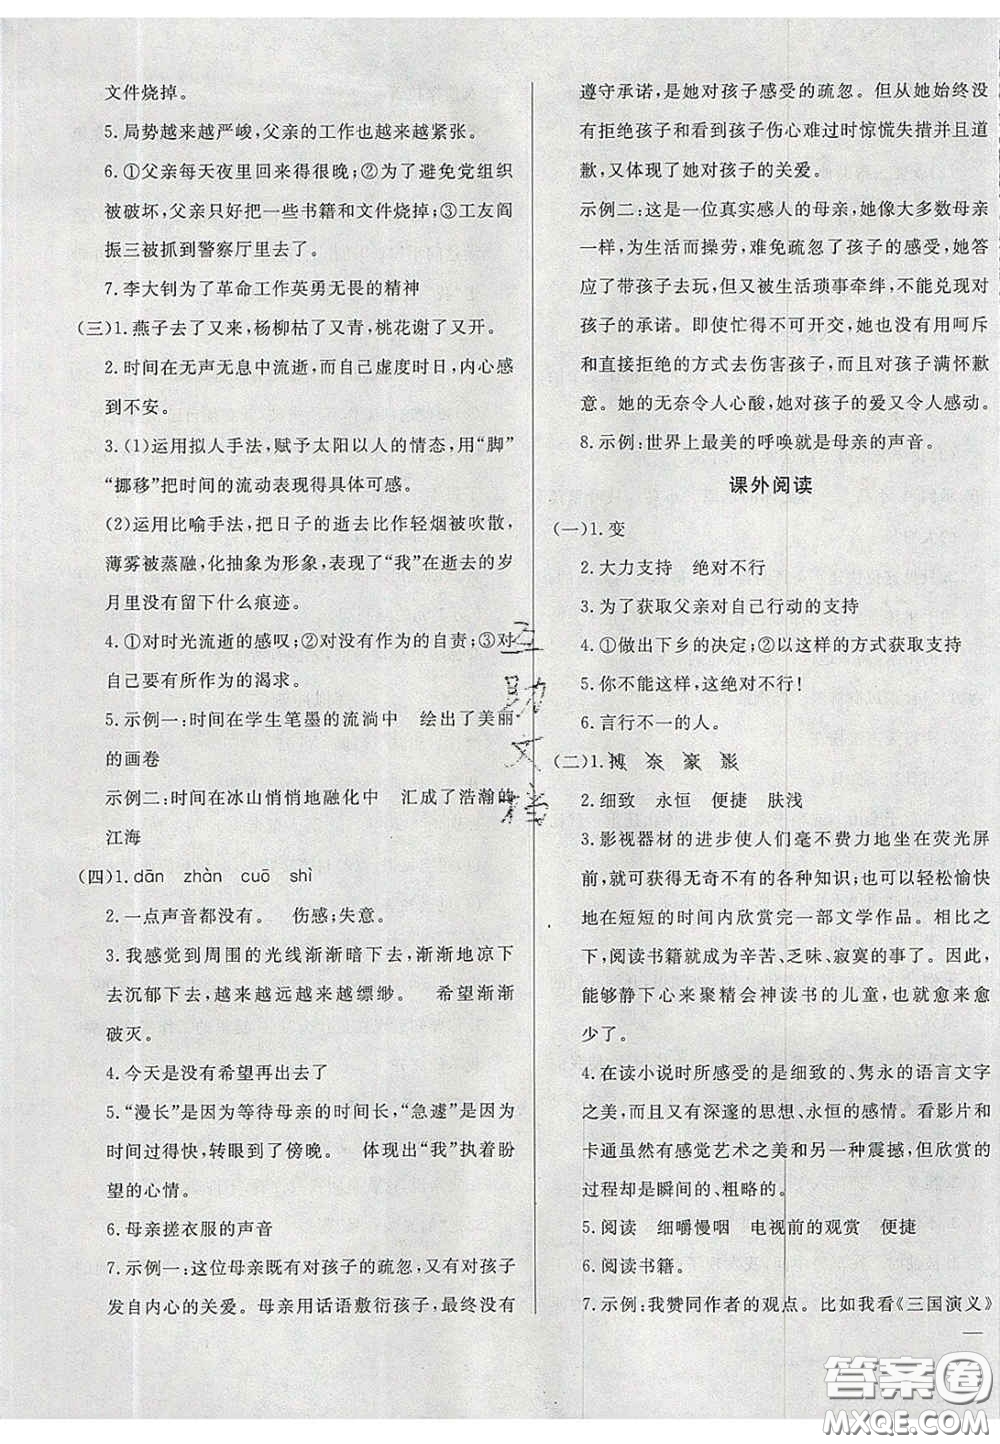 文件烧掉。
5.局势越来越严峻，父亲的工作也越来越紧张。
6.①父亲每天夜里回来得很晚；②为了避免党组织
被破坏，父亲只好把一些书籍和文件烧掉；③工友阎
振三被抓到警察厅里去了。
7.李大钊为了革命工作英勇无畏的精神
(三)1.燕子去了又来，杨柳枯了又青，桃花谢了又开。
2.时间在无声无息中流逝，而自己虚度时日，内心感
到不安。
3.(1)运用拟人手法，赋予太阳以人的情态，用“脚”
“挪移”把时间的流动表现得具体可感。
(2)运用比喻手法，把日子的逝去比作轻烟被吹散，
薄雾被蒸融，化抽象为形象，表现了“我”在逝去的岁
月里没有留下什么痕迹。
4.①对时光流逝的感叹；②对没有作为的自责；③对
自己要有所作为的渴求。
5.示例一：时间在学生笔墨的流淌中　绘出了美丽
的画卷
示例二：时间在冰山悄悄地融化中　汇成了浩瀚的
江海
(四)1.dān　zhàn　cuō　shì
2.一点声音都没有。　伤感；失意。
3.我感觉到周围的光线渐渐暗下去，渐渐地凉下
去沉郁下去，越来越远越来越缥缈。　希望渐渐
破灭。
4.今天是没有希望再出去了
5.“漫长”是因为等待母亲的时间长，“急遽”是因为
时间过得快，转眼到了傍晚。　体现出“我”执着盼
望的心情。
6.母亲搓衣服的声音
7.示例一：这位母亲既有对孩子的疏忽，又有对孩子
发自内心的关爱。母亲用话语敷衍孩子，最终没有
遵守承诺，是她对孩子感受的疏忽。但从她始终没
有拒绝孩子和看到孩子伤心难过时惊慌失措并且道
歉，又体现了她对孩子的关爱。
示例二：这是一位真实感人的母亲，她像大多数母亲
一样，为生活而操劳，难免疏忽了孩子的感受，她答
应了带孩子去玩，但又被生活琐事牵绊，不能兑现对
孩子的承诺。即使忙得不可开交，却没有用呵斥
和直接拒绝的方式去伤害孩子，而且对孩子满怀歉
意。她的无奈令人心酸，她对孩子的爱又令人感动。
8.示例：世界上最美的呼唤就是母亲的声音。
课外阅读
(一)1.变
2.大力支持　绝对不行
3.为了获取父亲对自己行动的支持
4.①做出下乡的决定；②以这样的方式获取支持
5.你不能这样，这绝对不行！
6.言行不一的人。
(二)1.搏　奈　豪　影
2.细致　永恒　便捷　肤浅
3.影视器材的进步使人们毫不费力地坐在荧光屏
前，就可获得无奇不有的各种知识；也可以轻松愉快
地在短短的时间内欣赏完一部文学作品。相比之
下，阅读书籍就成了辛苦、乏味、寂寞的事了。因此，
能够静下心来聚精会神读书的儿童，也就愈来愈
少了。
4.在读小说时所感受的是细致的、隽永的语言文字
之美，而且又有深邃的思想、永恒的感情。看影片和
卡通虽然有感觉艺术之美和另一种震撼，但欣赏的
过程却是瞬间的、粗略的。
5.阅读　细嚼慢咽　电视前的观赏　便捷
6.阅读书籍。
7.示例：我赞同作者的观点。比如我看《三国演义》
互助文档
答案圈
MXQE.COM